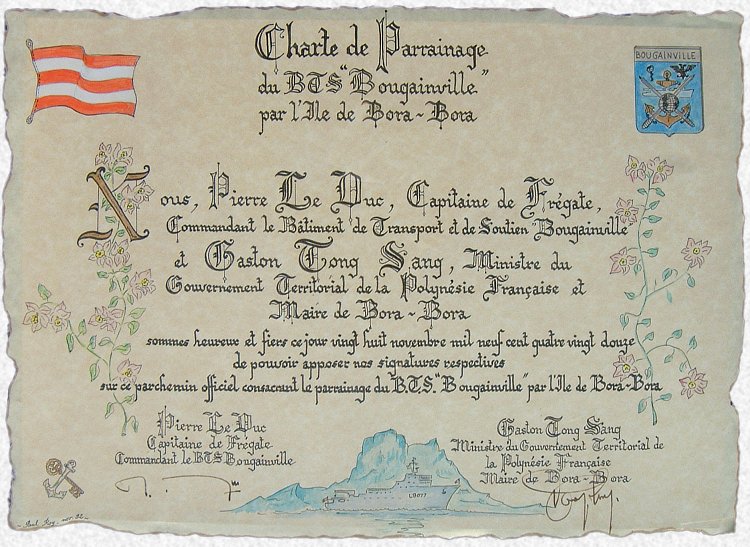 Charte de Parrainage
du BTS "Bougainville"
par l'Ile de Bora-Bora
BOUGAINVILLE
Nous, Pierre Le Duc, Capitaine de Frégate,
Commandant le Bâtiment de Transport et de Soutien Bougainville
et Gaston Tong Sang, Ministre du
Gouvernement Territorial de la Polynésie Française et
Maire de Bora-Bora
sommes heureux et fiers ce jour vingt huit novembre mil neuf cent quatre vingt douze
de pouvoir apposer nos signatures respectives
sur ce parchemin officiel consacrant le parrainage du B.T.S. "Bougainville" par l'Ile de Bora-Bora
Pierre Le Duc
Capitaine de Frégate
Commandant le BTS Bougainville
Gaston Tong Sang
Ministre du Gouvernement Territorial de
la Polynésie Française
Maire de Bora-Bora
L9077
nov. 92